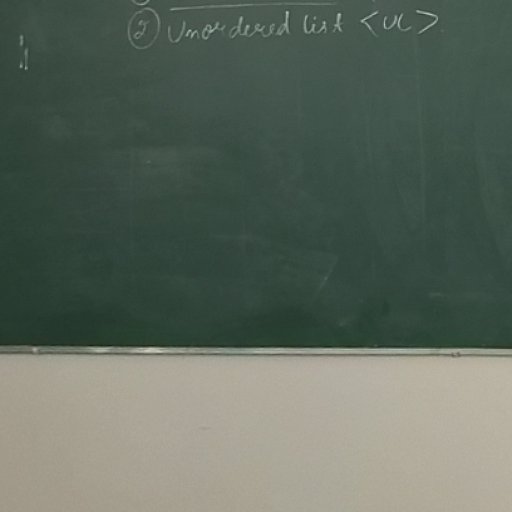 ② Unordered list <UL>